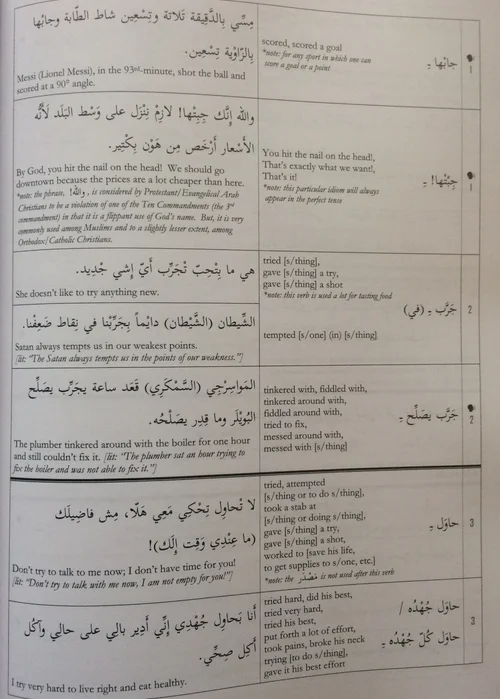 مِسّي بِالدَّقيقَة ثَلاثة وتِسْعين شاط الطّابة وجابْها
بِالزّاوْيِة تِسْعين.
Messi (Lionel Messi), in the 93rd-minute, shot the ball and
scored at a 90° angle.
scored, scored a goal
*note: for any sport in which one can
score a goal or a point
جابْها ـِ
1
والله إنَّك جِبِتْها! لازِمْ نِنْزَل على وَسْط البَلَد لَأَنُّه
الأَسْعار أَرْخَص مِن هَوْن بِكْتير.
By God, you hit the nail on the head! We should go
downtown because the prices are a lot cheaper than here.
*note: the phrase, والله!, is considered by Protestant/Evangelical Arab
Christians to be a violation of one of the Ten Commandments (the 3rd
commandment) in that it is a flippant use of God's name. But, it is very
commonly used among Muslims and to a slightly lesser extent, among
Orthodox/Catholic Christians.
You hit the nail on the head!,
That's exactly what we want!,
That's it!
*note: this particular idiom will always
appear in the perfect tense
جِبْتْها! ـِ
1
هي ما بِتْحِبّ تْجَرِّب أَيّ إشي جْديد.
She doesn't like to try anything new.
tried [s/thing],
gave [s/thing] a try,
gave [s/thing] a shot
*note: this verb is used a lot for tasting food
جَرَّب ـِ (في)
2
الشّيطان (الشَّيْطان) دايْماً بِجَرِّبْنا في نِقاط ضَعِفْنا.
Satan always tempts us in our weakest points.
[lit: "The Satan always tempts us in the points of our weakness."]
tempted [s/one] (in) [s/thing]
المَواسِرْجي (السَّمْكَري) قَعَد ساعة يجَرِّب يصَلِّح
البُويْلَر وما قِدِر يصَلْحُه.
The plumber tinkered around with the boiler for one hour
and still couldn't fix it. [lit: "The plumber sat an hour trying to
fix the boiler and was not able to fix it."]
tinkered with, fiddled with,
tinkered around with,
fiddled around with,
tried to fix,
messed around with,
messed with [s/thing]
جَرَّب يصَلِّح ـِ
2
لا تْحاوِل تِحْكي مَعي هَلّا، مِش فاضيلَك
(ما عِنْدي وَقِت إلَك)!
Don't try to talk to me now; I don't have time for you!
[lit: "Don't try to talk with me now, I am not empty for you!"]
tried, attempted
[s/thing or to do s/thing],
took a stab at
[s/thing or doing s/thing],
gave [s/thing] a try,
gave [s/thing] a shot,
worked to [save his life,
to get supplies to s/one, etc.]
*note: the مَصْدَر is not used after this verb
حاوَل ـِ
3
أنا بَحاوِل جُهْدي إنّي أَدير بالي على حالي وآكُل
أَكِل صِحّي.
I try very hard to live right and eat healthy.
tried hard, did his best,
tried very hard,
tried his best,
put forth a lot of effort,
took pains, broke his neck
trying [to do s/thing],
gave it his best effort
حاوَل جُهْدُه /
حاوَل كُلّ جُهْدُه ـِ
3